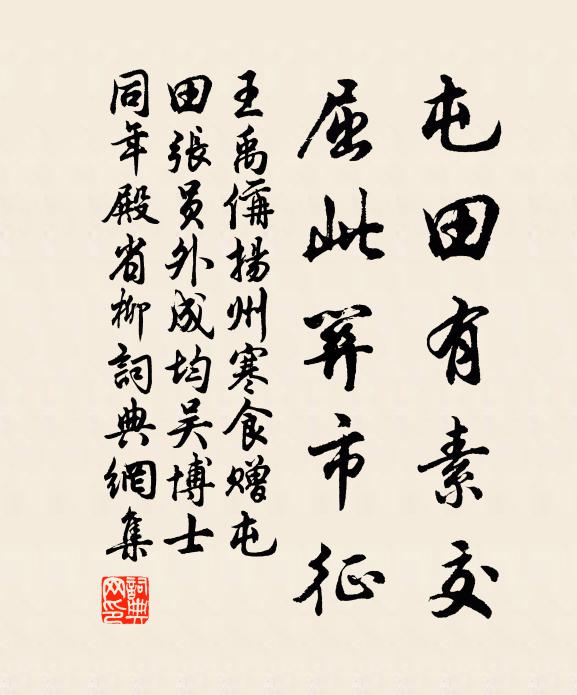 屯田有素交
屈此筭市征
王禹偁揚州寒食贈屯
田張員外成均吴博士
同年殿省柳詞典網集
詞典网印